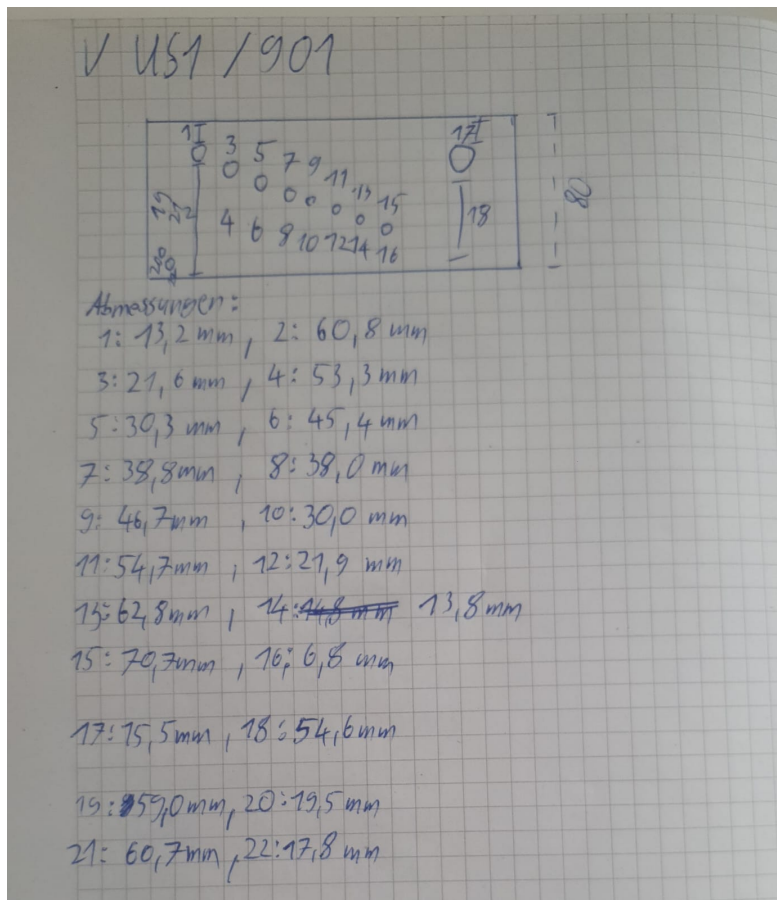 V U51 / 901
1 3 5 7 9 11 13 15 17
19
21
4 6 8 10 12 14 16 18
20
80
Abmessungen:
1: 13,2 mm, 2: 60,8 mm
3: 21,6 mm, 4: 53,3 mm
5: 30,3 mm, 6: 45,4 mm
7: 38,8 mm, 8: 38,0 mm
9: 46,7 mm, 10: 30,0 mm
11: 54,7 mm, 12: 21,9 mm
13: 62,8 mm, 14: 14,8 mm 13,8 mm
15: 70,7 mm, 16: 6,8 mm
17: 15,5 mm, 18: 54,6 mm
19: 59,0 mm, 20: 19,5 mm
21: 60,7 mm, 22: 17,8 mm